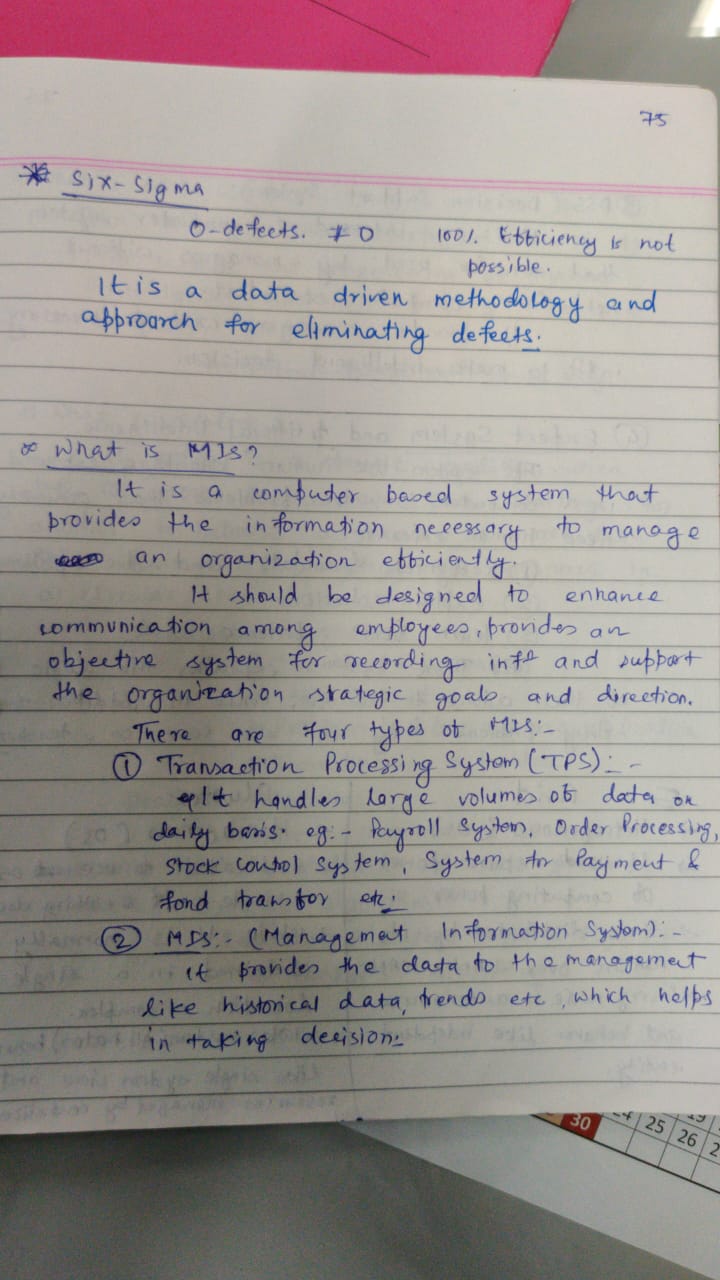 75
* Six-Sigma
0-defects. ≠ 0 100%. Efficiency is not
possible.
It is a data driven methodology and
approach for eliminating defects.
* What is MIS?
It is a computer based system that
provides the information necessary to manage
an organization efficiently.
It should be designed to enhance
communication among employees, provides an
objective system for recording infⁿ and support
the organization strategic goals and direction.
There are four types of MIS:-
① Transaction Processing System (TPS):-
It handles large volumes of data on
daily basis. eg:- Payroll System, Order Processing,
Stock control System, System for Payment &
fond transfor etc.
② MIS:- (Managemat Information System):-
it provides the data to the managemet
like historical data, trends etc, which helps
in taking decision:-
30 24 25 26 2